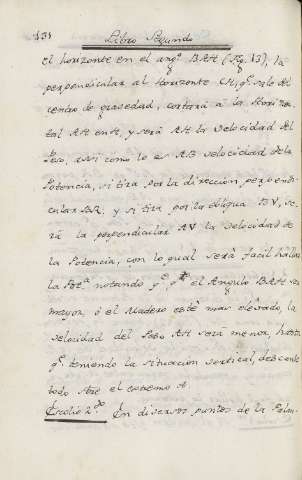 131
Libro Segundo
el horizonte en el ang.º BAH (fig. 13), la
perpendicular al Horizonte CH, q.e sale del
centro de gravedad, cortará a la Horizon
tal AH en H, y será AH la velocidad del
Peso, assi como lo es AB velocidad de la
Potencia, si tira por la direccion perpendi-
cular BR. y si tira por la obliqua BV, se-
rá la perpendicular AV la velocidad de
la Potencia, con lo qual será facil hallar
la Pot.a notando q.e el Angulo BAH sea
mayor, ó el Madero esté mas elevado, la
velocidad del Peso AH será menor, hasta
q.e teniendo la situacion vertical, descanse
todo sobre el extremo A
Escolio 2.º En diversos puntos de la Palan-